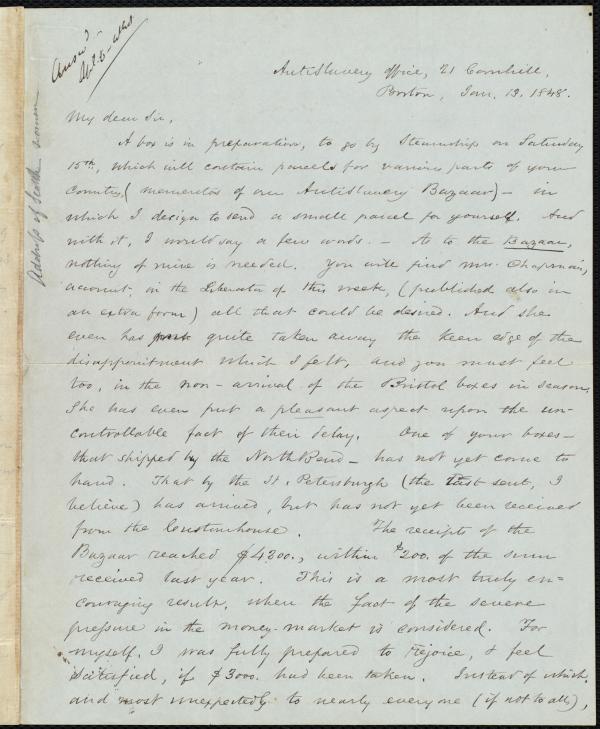 Ansd.
Address of Scotch women
Antislavery Office, 21 Cornhill,
Boston, Jan. 13. 1848.
My dear Sir,
A box is in preparation, to go by Steamship on Saturday
15th, which will contain parcels for various parts of your
Country, (mementos of our Antislavery Bazaar) – in
which I design to send a small parcel for yourself. And
with it, I would say a few words. – As to the Bazaar,
nothing of mine is needed. You will find Mrs. Chapman's
account, in the Liberator of this week, (published also in
an extra form) all that could be desired. And she
even has quite taken away the keen edge of the
disappointment which I felt, and you must feel
too, in the non-arrival of the Bristol boxes in season.
She has even put a pleasant aspect upon the un-
controllable fact of their delay. One of your boxes –
that shipped by the North Bend – has not yet come to
hand. That by the St. Petersburgh (the last sent, I
believe) has arrived, but has not yet been received
from the Customhouse. The receipts of the
Bazaar reached $4200., within $200. of the sum
received last year. This is a most truly en=
couraging result, when the fact of the severe
pressure in the money-market is considered. For
myself, I was fully prepared to rejoice, & feel
satisfied, if $3000. had been taken. Instead of which,
and most unexpectedly to nearly everyone (if not to all),